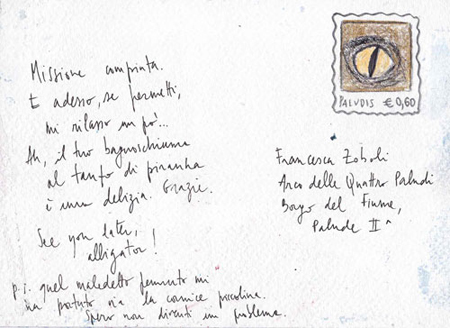 Missione compiuta.
E adesso, se permetti,
mi rilasso un po'...
Ah, il tuo bagnoschiuma
al tanfo di piranha
è una delizia. Grazie.
See you later,
alligator!
p.s. quel maledetto pennuto mi
ha portato via la cornice piccolina.
Spero non diventi un problema.
PALUDIS €0,60
Francesca Zoboli
Arco delle Quattro Paludi
Borgo del Fiume,
Palude IIª